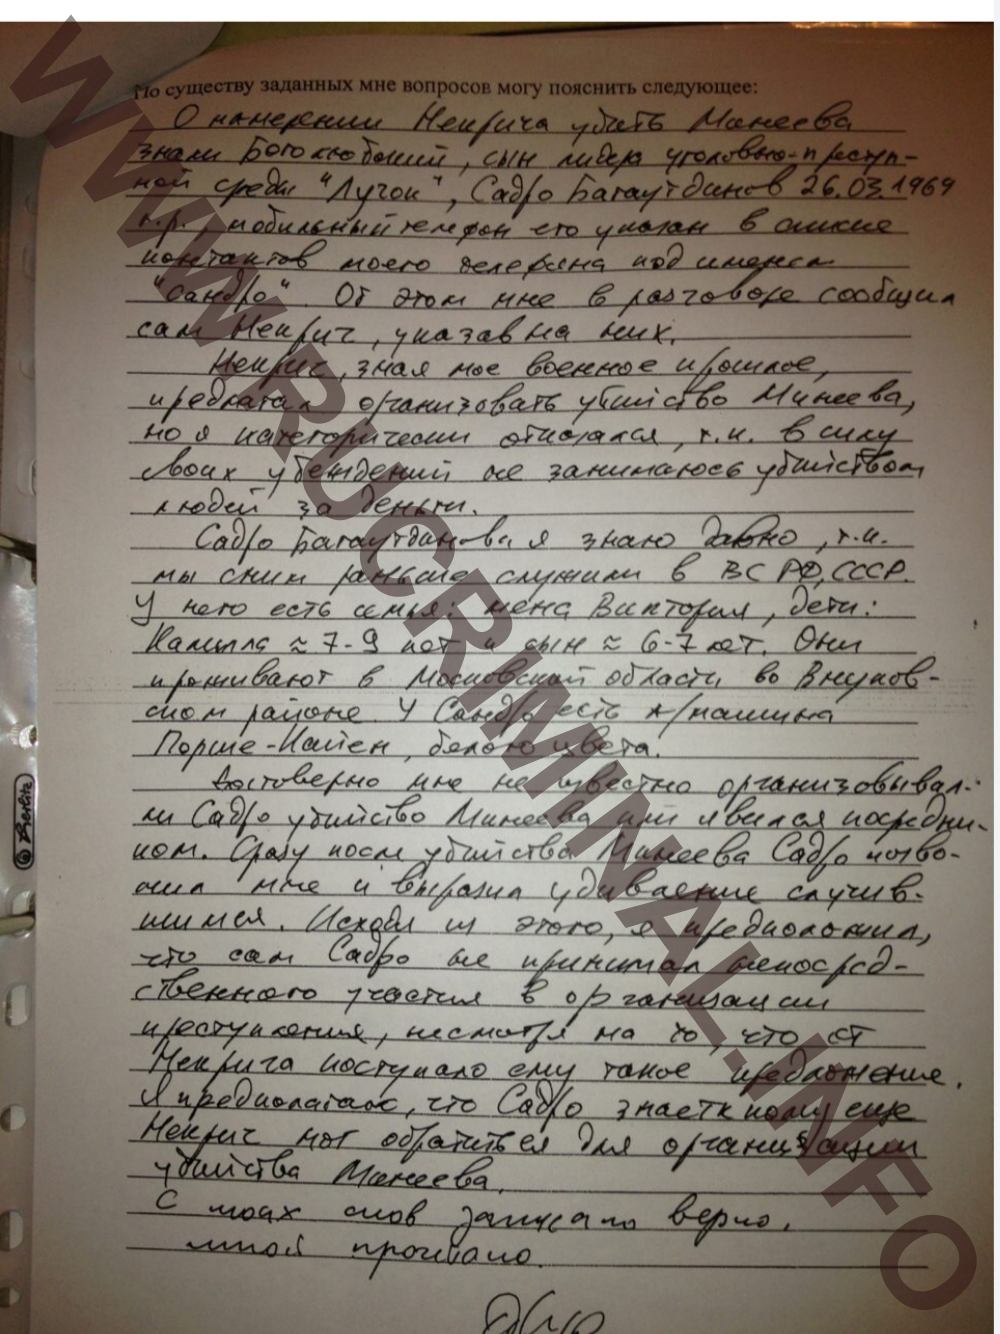 По существу заданных мне вопросов могу пояснить следующее:
О намерении Некрича убить Минеева
знали Боголюбский, сын лидера уголовно-преступ-
ной среды "Лучок", Садро Багаутдинов 26.03.1969
г.р., мобильный телефон его указан в списке
контактов моего телефона под именем
"Сандро". Об этом мне в разговоре сообщил
сам Некрич, указав на них.
Некрич, зная мое военное прошлое,
предлагал организовать убийство Минеева,
но я категорически отказался, т.к. в силу
своих убеждений не занимаюсь убийством
людей за деньги.
Садро Багаутдинова я знаю давно, т.к.
мы с ним раньше служили в ВС РФ, СССР.
У него есть семья: жена Виктория, дети:
Камилла ≈ 7-9 лет и сын ≈ 6-7 лет. Они
проживают в Московской области во Внуков-
ском районе. У Сандро есть а/машина
Порше-Кайен, белого цвета.
Достоверно мне не известно организовывал-
ли Садро убийство Минеева или явился посредни-
ком. Сразу после убийства Минеева Садро позво-
нил мне и выразил удивление случив-
шимся. Исходя из этого, я предположил,
что сам Садро не принимал непосред-
ственного участия в организации
преступления, несмотря на то, что от
Некрича поступало ему такое предложение.
Я предполагаю, что Садро знает к кому еще
Некрич мог обратиться для организации
убийства Минеева.
С моих слов записано верно,
мной прочитано.
WWW.RUCRIMINAL.INFO